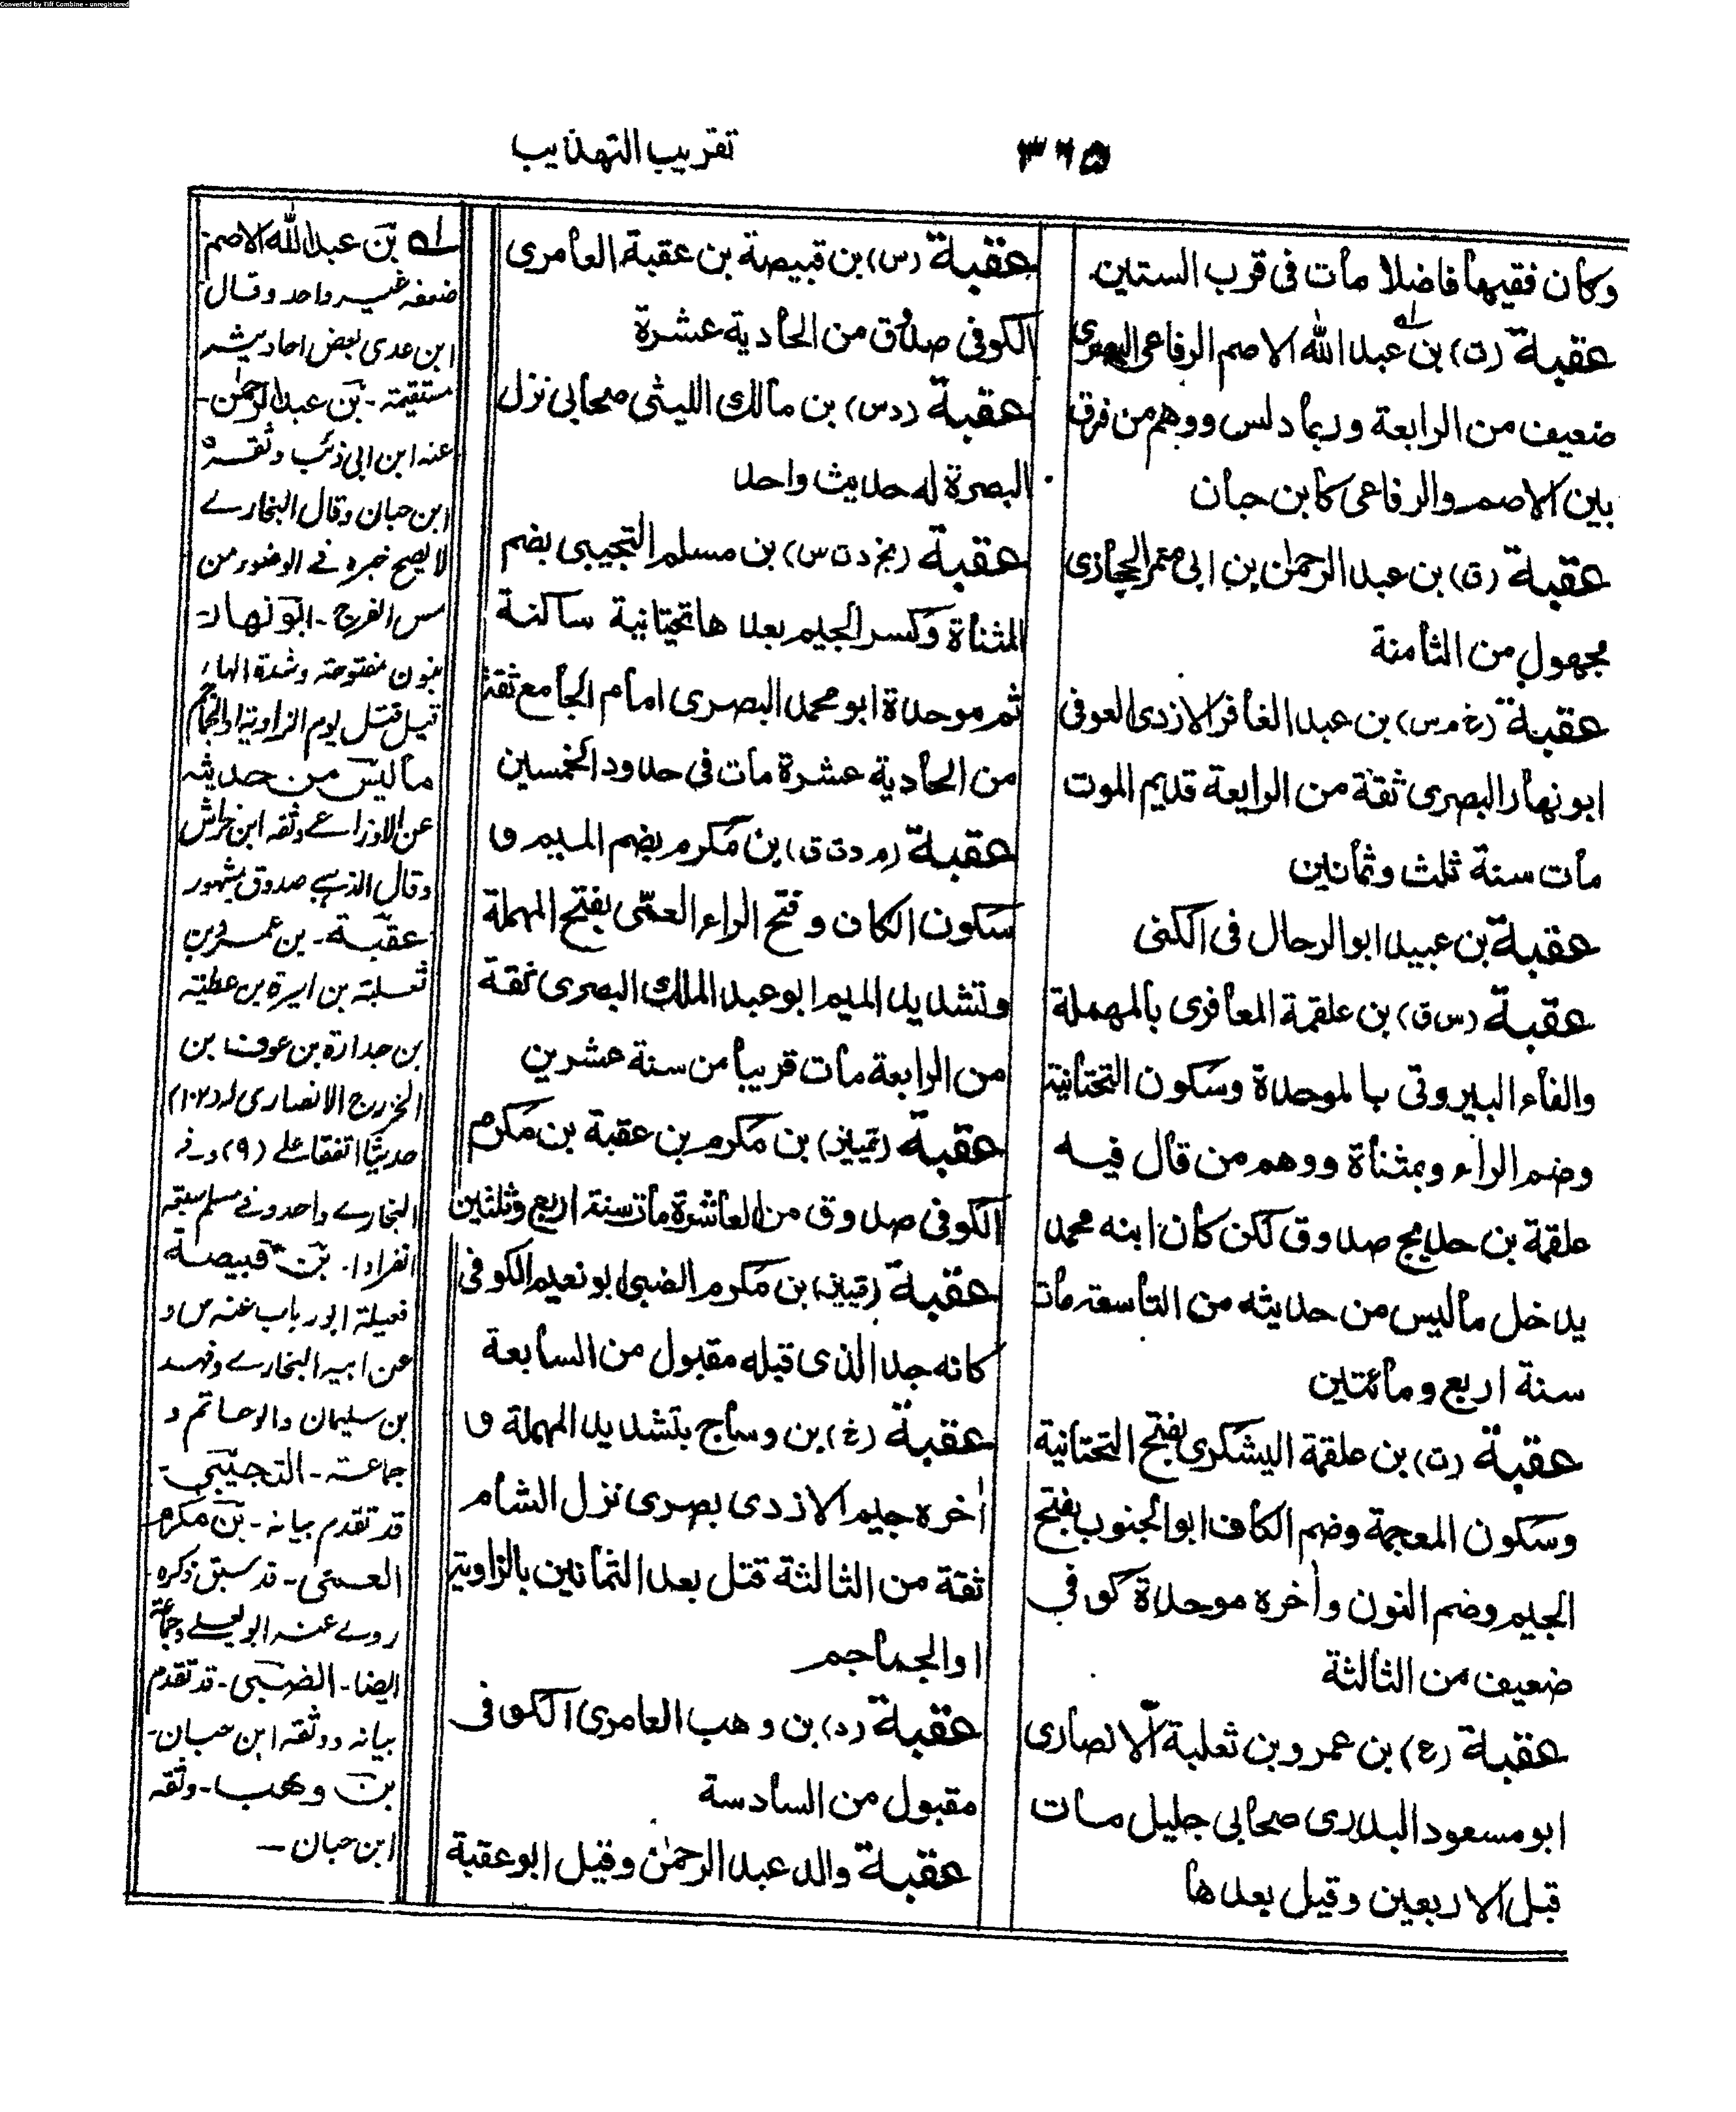 Converted by Tiff Combine - unregistered
٣٦٥
تقريب التهذيب
وكان فقيها فاضلا مات فى قرب الستين
عقبة (ت) بن عبد الله الاصم الرفاعى البصرى
ضعيف من الرابعة وربما دلس ووهم من فرق
بين الاصم والرفاعى كابن حبان
عقبة (ق) بن عبد الرحمٰن بن ابى معمر الحجازى
مجهول من الثامنة
عقبة (خ م س) بن عبد الغافر الازدى العوفى
ابو نهار البصرى ثقة من الرابعة قديم الموت
مات سنة ثلث وثمانين
عقبة بن عبيد ابو الرحال فى الكنى
عقبة (س ق) بن علقمة المعافرى بالمهملة
والفاء البيروتى بالموحدة وسكون التحتانية
وضم الراء وبمثناة ووهم من قال فيه
علقمة بن حديج صدوق لكن كان ابنه محمد
يدخل ماليس من حديثه من التاسعة مات
سنة اربع ومائتين
عقبة (ت) بن علقمة اليشكرى بفتح التحتانية
وسكون المعجمة وضم الكاف ابو الجنوب بفتح
الجيم وضم النون واٰخره موحدة كوفى
ضعيف من الثالثة
عقبة (ع) بن عمرو بن ثعلبة الانصارى
ابو مسعود البدرى صحابى جليل مات
قبل الاربعين وقيل بعدها
عقبة (س) بن قبيصة بن عقبة العامرى
الكوفى صدوق من الحادية عشرة
عقبة (د س) بن مالك الليثى صحابى نزل
البصرة له حديث واحد
عقبة (بخ د ت س) بن مسلم التجيبى بضم
المثناة وكسر الجيم بعدها تحتانية ساكنة
ثم موحدة ابو محمد البصرى امام الجامع ثقة
من الحادية عشرة مات فى حدود الخمسين
عقبة (م د ت ق) بن مكرم بضم الميم و
سكون الكاف وفتح الراء العمّى بفتح المهملة
وتشديد الميم ابو عبد الملك البصرى ثقة
من الرابعة مات قريبا من سنة عشرين
عقبة (تمييز) بن مكرم بن عقبة بن مكرم
الكوفى صدوق من العاشرة مات سنة اربع وثلثين
عقبة (تمييز) بن مكرم الضبى ابو نعيم الكوفى
كانه جد الذى قبله مقبول من السابعة
عقبة (خ) بن وساج بتشديد المهملة و
اٰخره جيم الازدى بصرى نزل الشام
ثقة من الثالثة قتل بعد الثمانين بالزاوية
او الجماجم
عقبة (د) بن وهب العامرى الكوفى
مقبول من السادسة
عقبة والد عبد الرحمٰن وقيل ابو عقبة
له بن عبد الله الاصم
ضعفه غير واحد وقال
ابن عدى بعض احاديثه
مستقيمة - بن عبد الرحمٰن -
عنه ابن ابى ذئب وثقه
ابن حبان وقال البخارے
لا يصح خبره فے الوضوء من
مس الفرج - ابو نهار
بنون مفتوحة وشدة الهاء
قيل قتل يوم الزاوية او الجماجم
ماليس من حديثه
عن الاوزاعے وثقه ابن خراش
وقال الذهبے صدوق مشهور
عقبة - بن عمرو بن
ثعلبة بن اسيرة بن عطية
بن جدارة بن عوف بن
الخزرج الانصارى له (١٠٢)
حديثًا اتفقا علے (٩) وفے
البخارے واحد وفے مسلم سبعة
انفرادا. بن قبيصة
ابو رباب عنه س و
عن ابيه البخارے وفهد
بن سليمان وابو حاتم و
جماعة - التجيبى -
قد تقدم بيانه - بن مكرم
العمى - قد سبق ذكره
روے عنه ابو يعلے وجماعة
ايضا - الضبى - قد تقدم
بيانه ووثقه ابن حبان -
بن وهب - وثقه
ابن حبان -